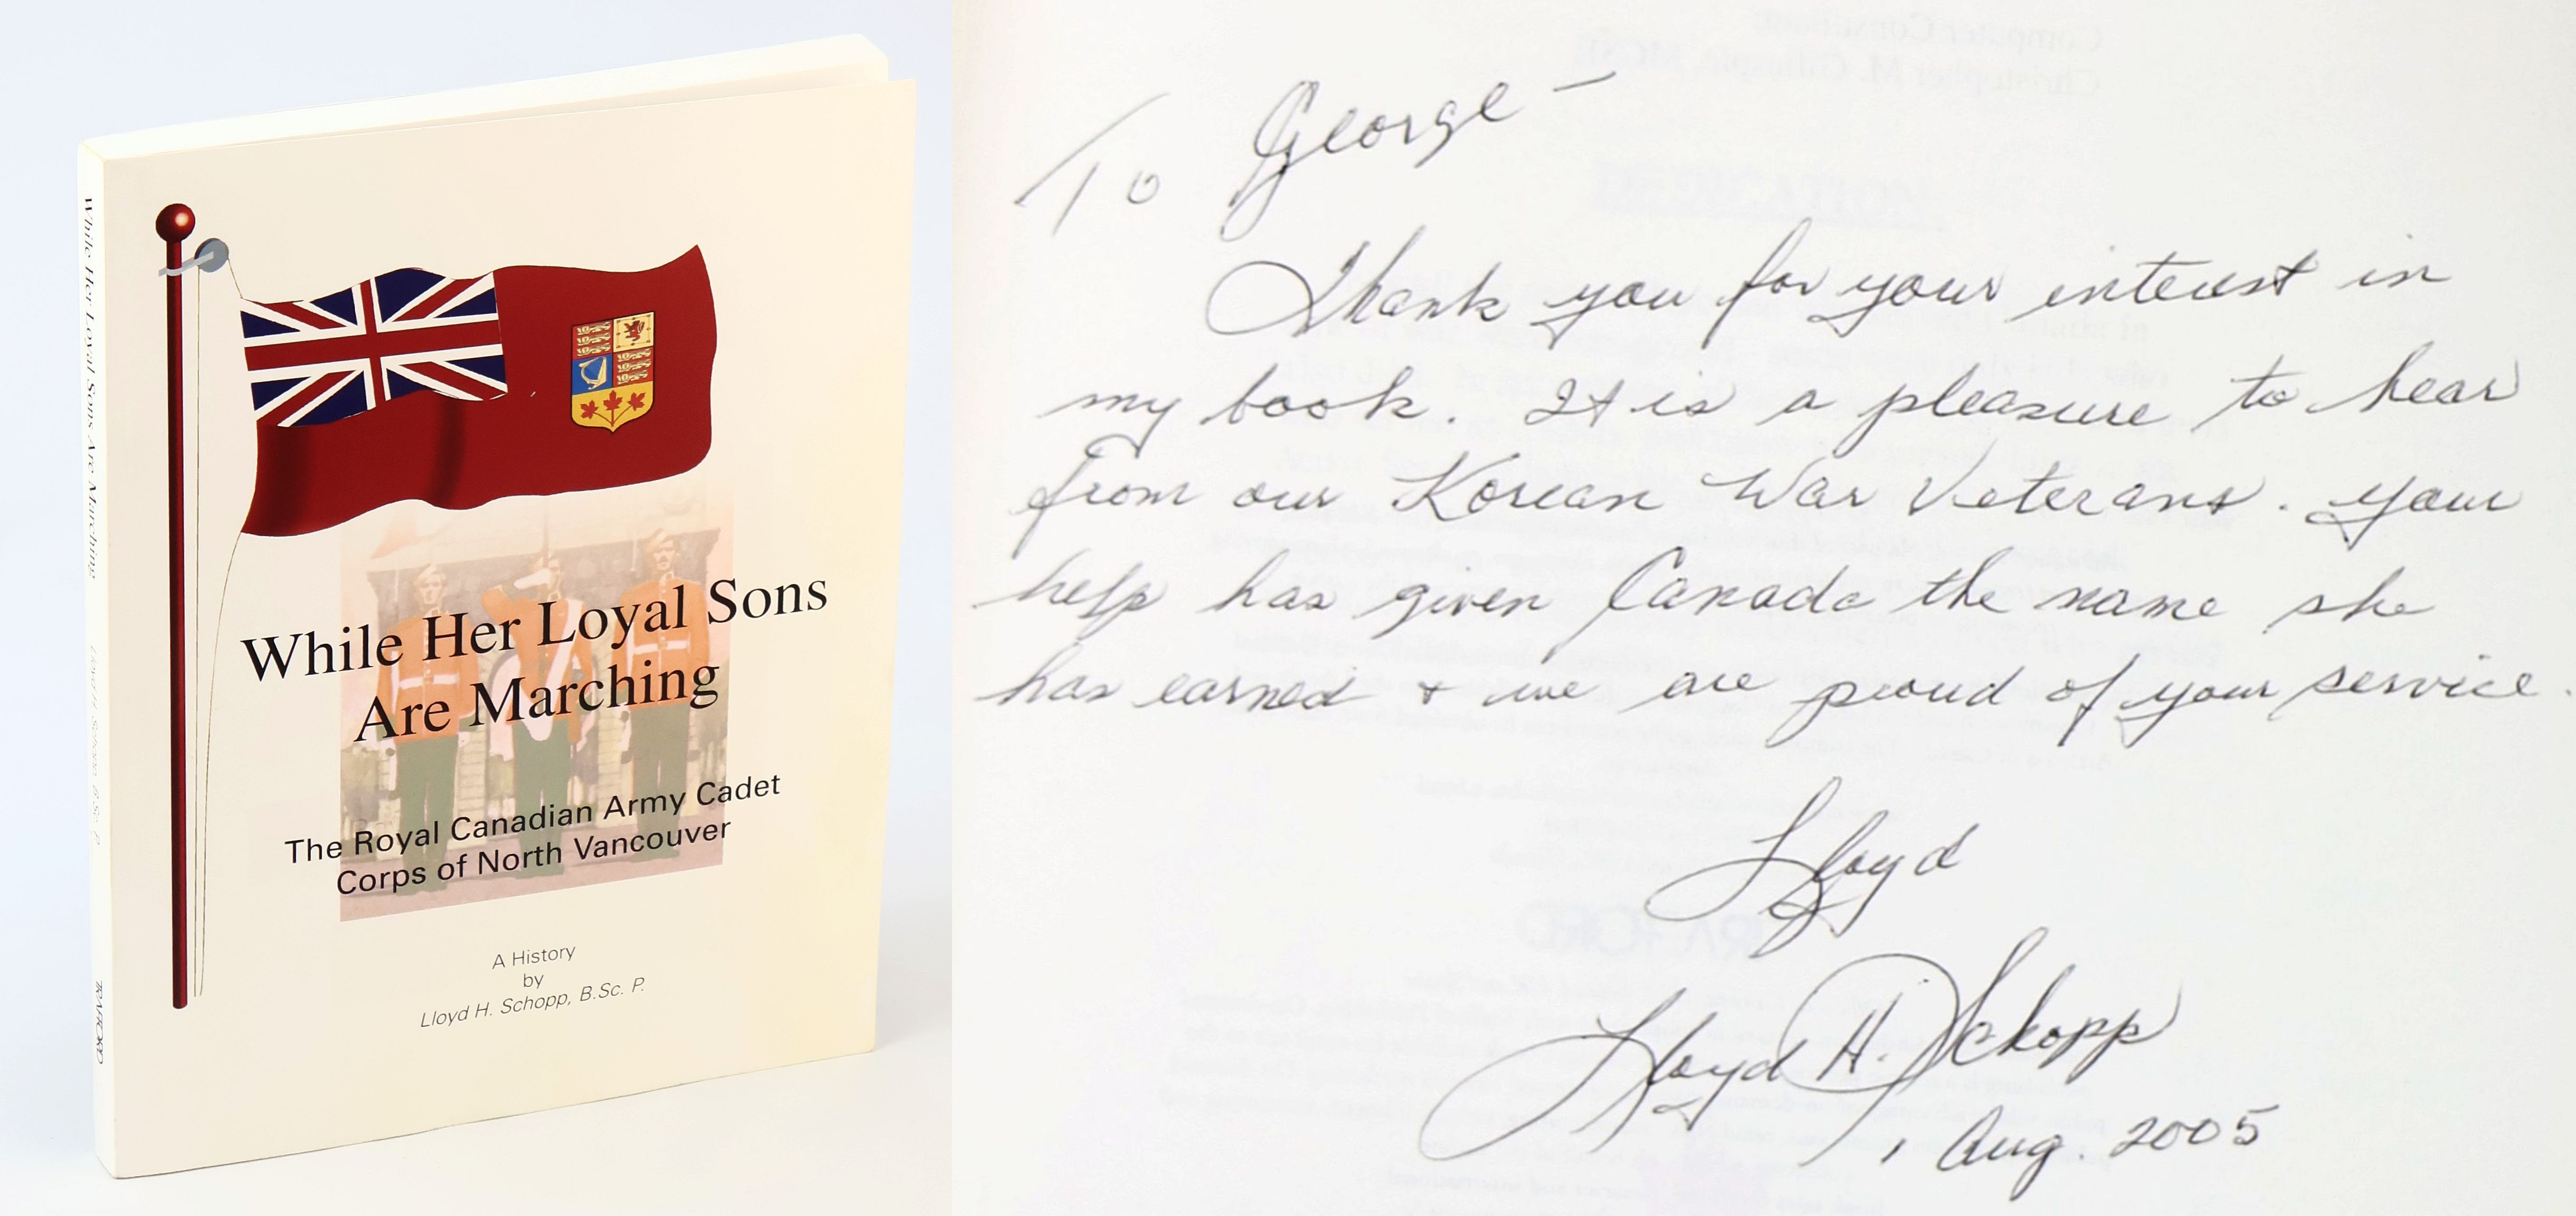 While Her Loyal Sons Are Marching
Lloyd H. Schopp B.Sc. P.
TRAFFORD
While Her Loyal Sons
Are Marching
The Royal Canadian Army Cadet
Corps of North Vancouver
A History
by
Lloyd H. Schopp, B.Sc. P.
To George –
Thank you for your interest in
my book. It is a pleasure to hear
from our Korean War Veterans. Your
help has given Canada the name she
has earned & we are proud of your service.
Lloyd
Lloyd H. Schopp
, Aug. 2005
Computer Consultant:
Christopher M. Gillespie, MCSE